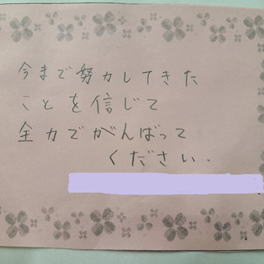 今まで努力してきた
ことを信じて
全力でがんばって
ください.